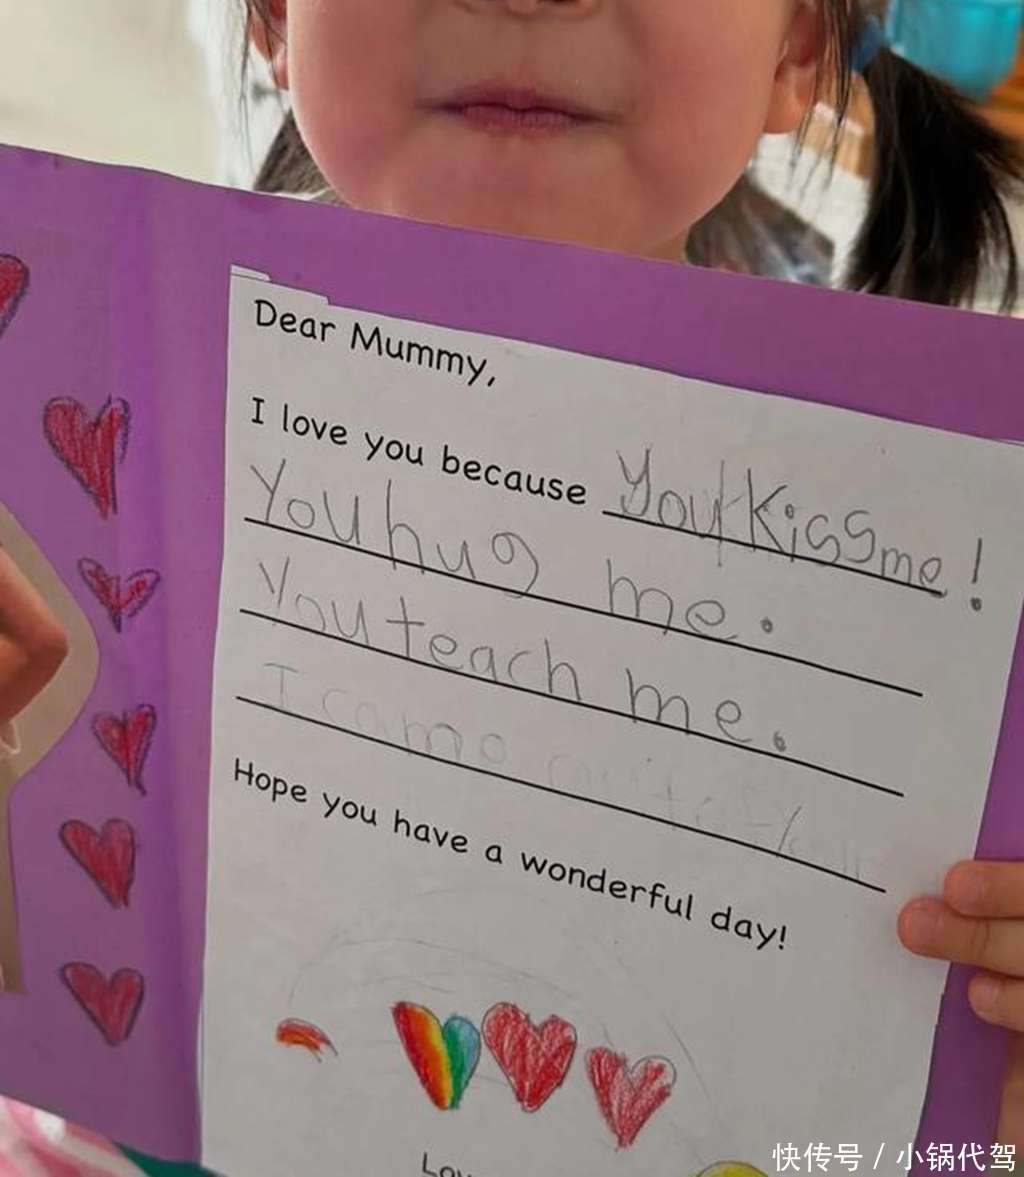 Dear Mummy,
I love you because You Kiss me!
You hug me.
You teach me.
I
Hope you have a wonderful day!
快传号 / 小锅代驾